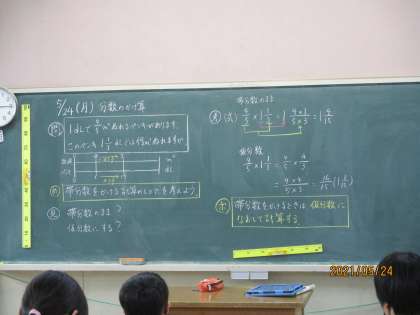 5/24(月) 分数のかけ算
問 1dLで4/5㎡ぬれるペンキがあります。
このペンキ1 1/3dLでは何㎡ぬれますか
㎡
dL
め 帯分数をかける計算のしかたを考えよう
見 帯分数のまま?
仮分数にする?
帯分数のまま
(式) 4/5×1 1/3=1 4×1/5×3=1 4/15
仮分数
4/5×1 1/3=4/5×4/3
=4×4/5×3=16/15(1 1/15)
ま 帯分数をかけるときは仮分数に
なおして計算する。
2021/05/24